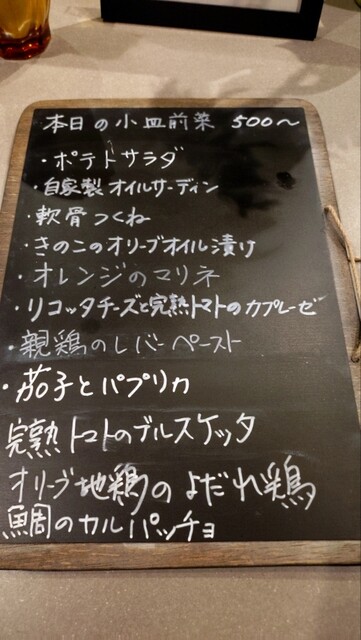 本日の小皿前菜 500〜
・ポテトサラダ
・自家製オイルサーディン
・軟骨つくね
・きのこのオリーブオイル漬け
・オレンジのマリネ
・リコッタチーズと完熟トマトのカプレーゼ
・親鶏のレバーペースト
・茄子とパプリカ
完熟トマトのブルスケッタ
オリーブ地鶏のよだれ鶏
鯛のカルパッチョ